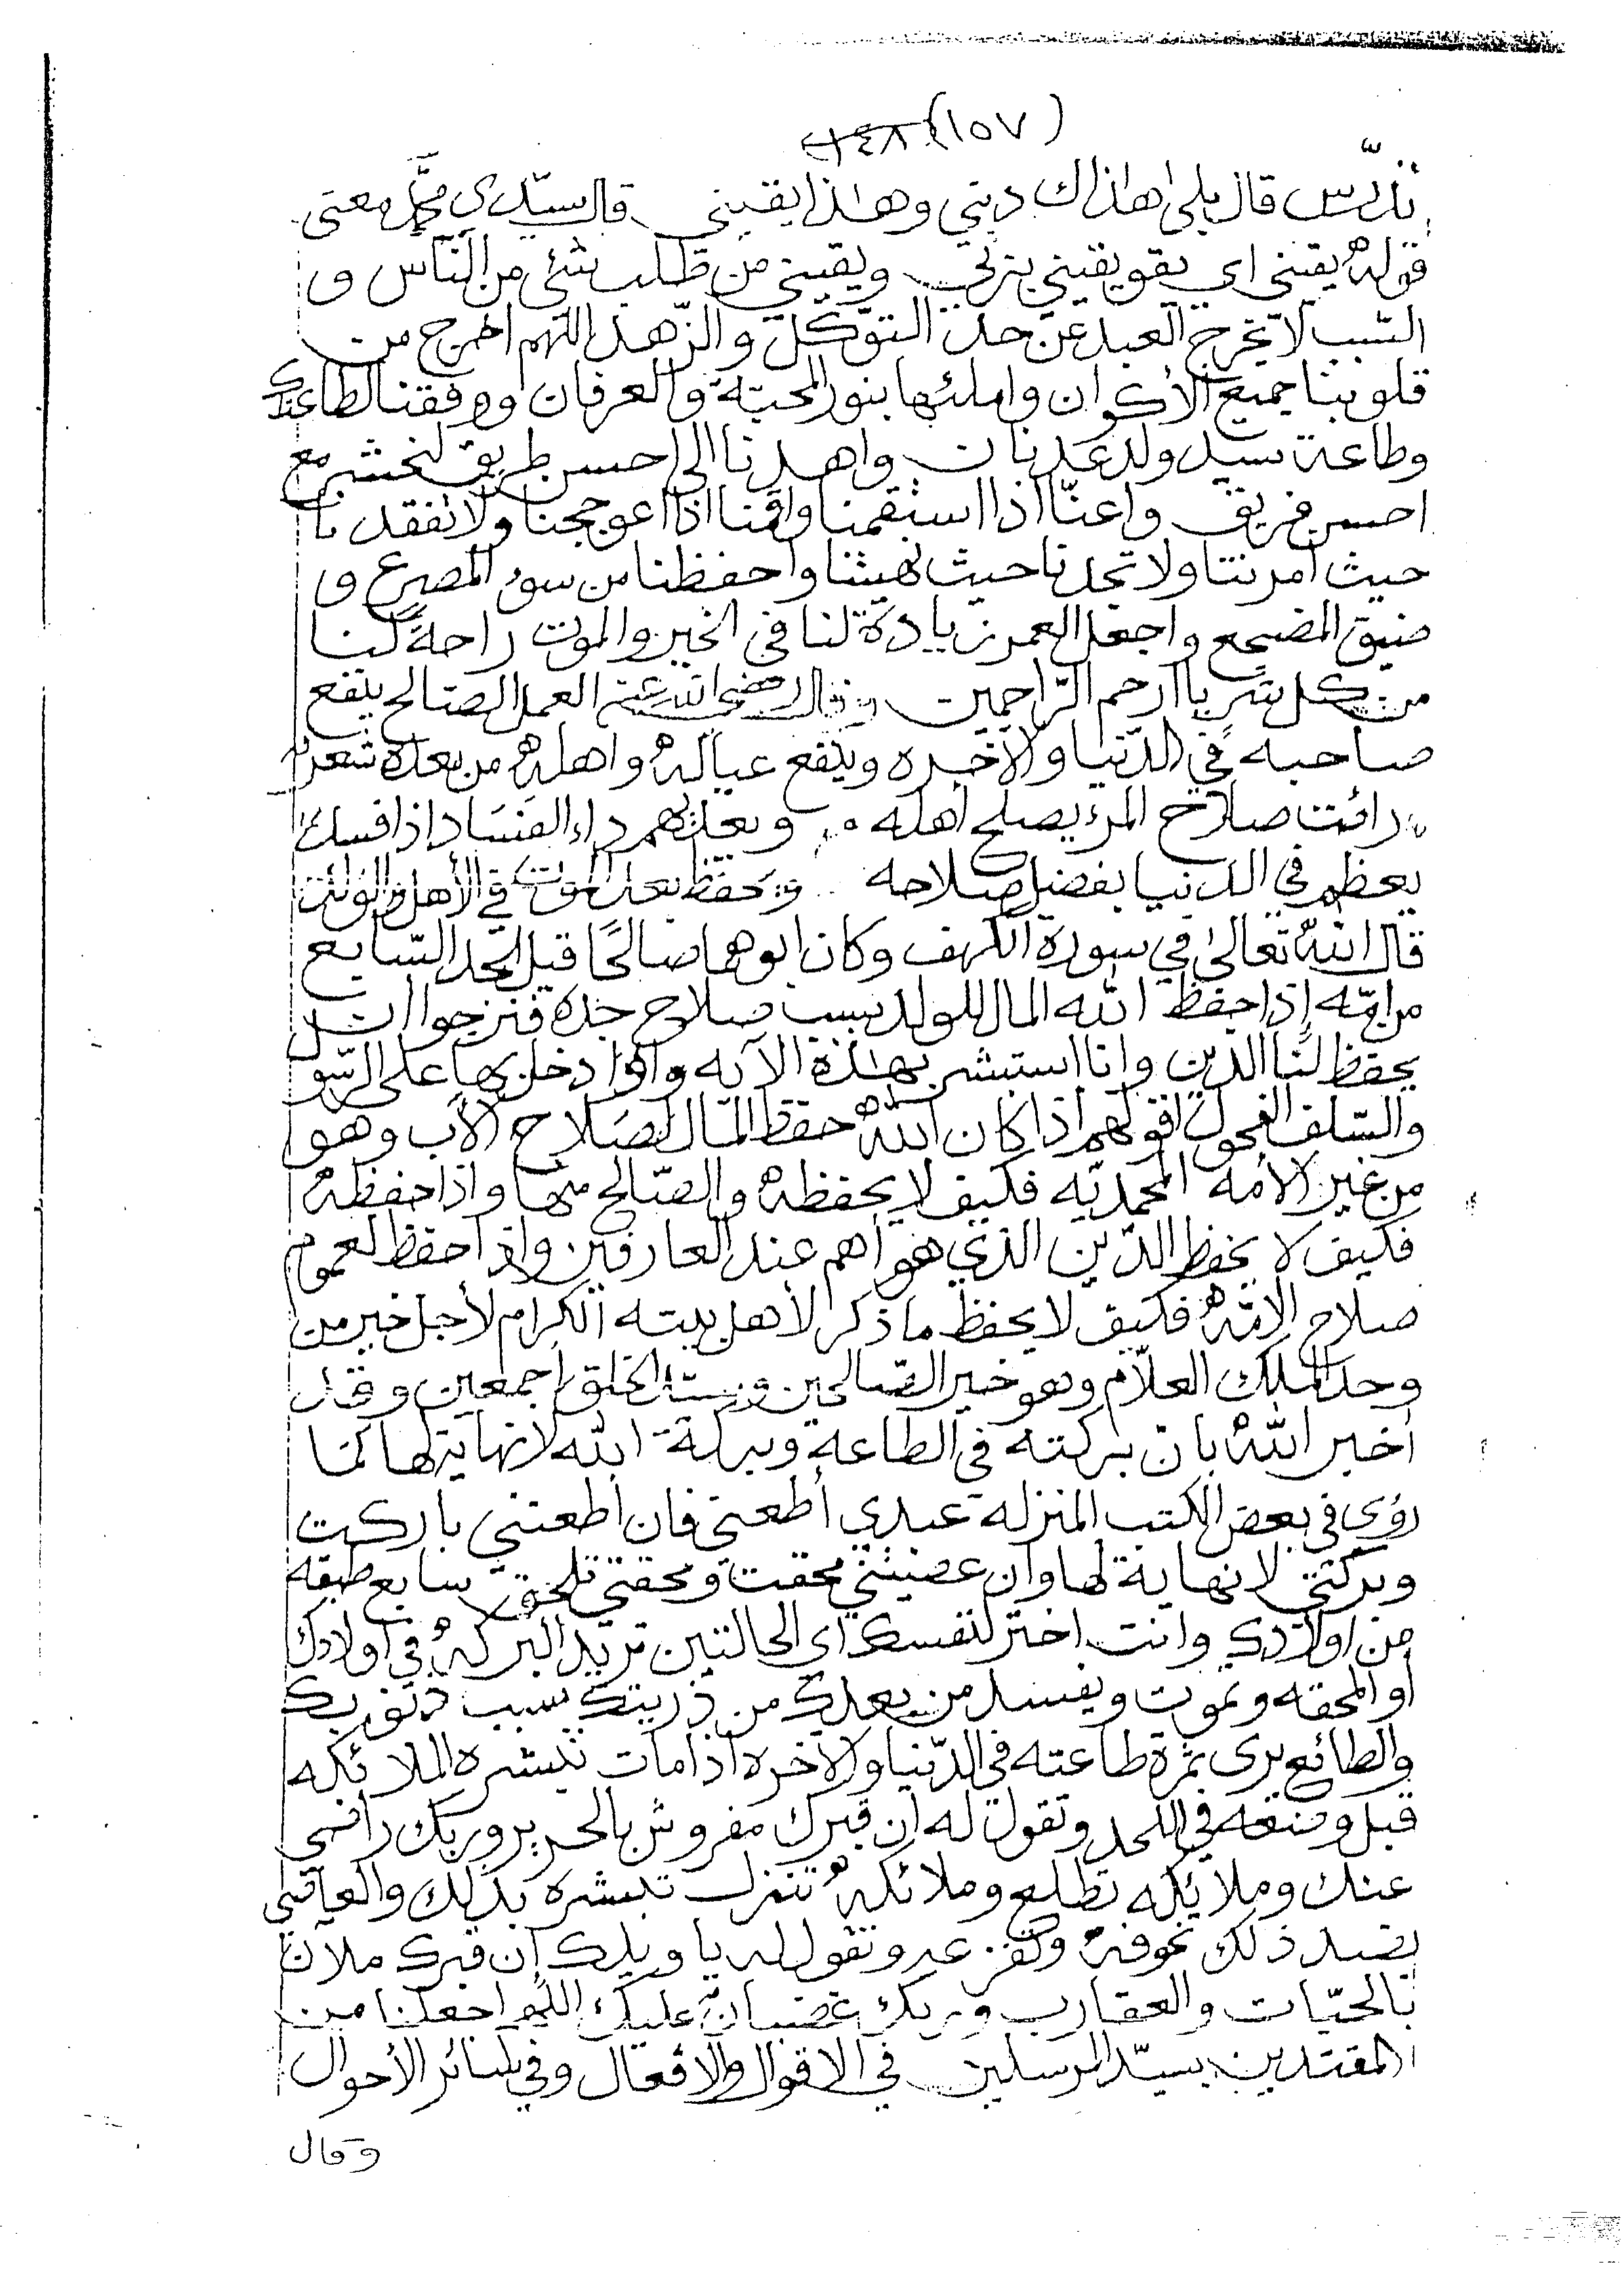 (١٥٧) ١٤٨
تدرّس قال بلى اهاذاك ديني وهذا يقيني قال سيّدي محمّد معنى
قولهُ يقيني اي يقويقيني بربي ويقيني من طلب شئي من النّاس و
السّبب لا يخرج العبد عن حد التوكّل والزّهد اللهم اخرج من
قلوبنا جميع الأكوان واملئها بنور المحبّة والعرفان ووفقنا لطاعتك
وطاعة سيد ولد عدنان واهدنا الى احسن طريق لنحشر مع
احسن فريق واعنّا اذا استقمنا واقمنا اذا اعوججنا ولا تفقدنا
حيث امرتنا ولا تجدنا حيث نهيتنا واحفظنا من سوء المصرع و
ضيق المضجع واجعل العمر زيادة لنا في الخير والموت راحةً لنا
من كل شر يا ارحم الرّاحمين وقال رضي الله عنه العمل الصّالح ينفع
صاحبه في الدّنيا والاخره وينفع عيالهُ واهلهُ من بعده شعر
رائت صلاح المرء يصلح اهله ويعديهم داء الفسَاد اذا فسد
يعظم في الدنيا بفضل صلاحه ويحفظ بعد الموت في الأهل والولد
قال اللهُ تعالى في سورة الكهف وكان ابوهما صالحًا قيل الجد السّابع
من امّه إذا حفظ الله المال للولد بسبب صلاح جده فنرجوا ان
يحفظ لنا الدين وانا استبشر بهذه الآيه واذا دخل بها على الرسول
والسّلف الفحول اقولهم اذا كان اللهُ حفظ المال لصَلاح الأب وهو
من غير الأمه المحمديّه فكيف لا يحفظهُ والصّالح منها واذا حفظهُ
فكيف لا يحفظ الدّين الذي هو اهم عند العارفين واذا حفظ لعموم
صلاح الامّهُ فكيف لا يحفظ ما ذكر لأهل بيته الكرام لأجل خير من
وحد الملك العلّام وهو خير الصّالحين وسيّد الخلق اجمعين وقد
أخبر اللهُ بان بركته في الطاعة وبركة الله لا نهاية لها كما
رؤي في بعض الكتب المنزله عبدي أطعني فان أطعتني باركت
وبركتي لا نهاية لها وان عصيتني محقت ومحقتي تلحق سابع طبقه
من اولادك وانت اختر لنفسك اي الحالتين تريد البركهُ في اولادك
أو المحقه وتموت ويفسد من بعدك من ذريتك بسبب ذنوبك
والطائع يرى ثمرة طاعته في الدّنيا والأخره اذا مات تبشره الملائكه
قبل وضعه في اللحد وتقول له ان قبرك مفروش بالحرير وربك راضي
عنك وملائكه تطلع وملائكهُ تنزل تبشره بذلك والعاصي
بضد ذلك تخوفهُ وتفزعه وتقول له يا ويلك إن قبرك ملان
بالحيّات والعقارب وربك غضبان عليك اللّهم اجعلنا من
المقتدين بسيّد المرسلين في الاقوال والافعال وفي سائر الأحوال
وقال